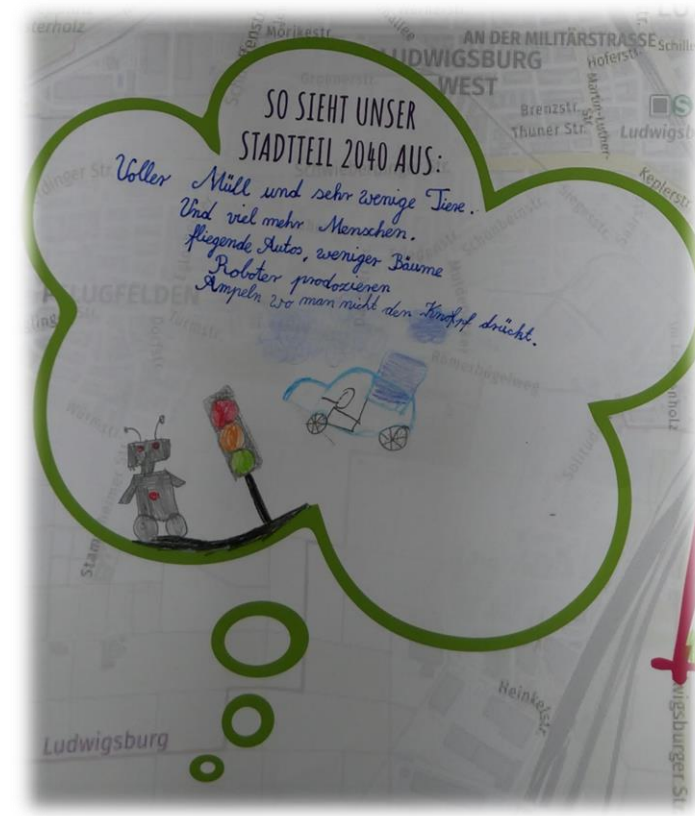 Mörikestr.
AN DER MILITÄRSTRASSE
LUDWIGSBURG
WEST
Hoferstr.
Brenzstr.
Thuner Str.
Martin-Luther-
Keplerstr.
SO SIEHT UNSER
STADTTEIL 2040 AUS:
Voller Müll und sehr wenige Tiere.
Und viel mehr Menschen.
fliegende Autos, weniger Bäume
Roboter prodozieren
Ampeln wo man nicht den Knopf drückt.
PFLUGFELDEN
Römerhügelweg
Heinkelstr.
Ludwigsburg